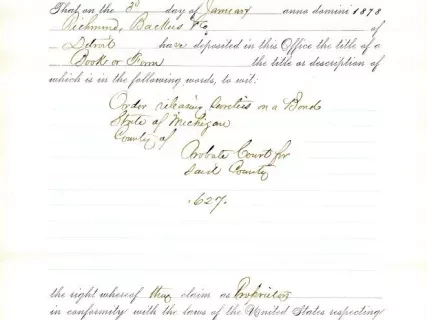 That on the 3d day of January anno domini 1878
Richmond, Backus & Co of
Detroit have deposited in this Office the title of a
Book or Form the title or description of
which is in the following words, to wit:
Order releasing Sureties on a Bond
State of Michigan
County of
Probate Court for
said County
.627.
the right whereof they claim as Proprietors
in conformity with the laws of the United States respecting